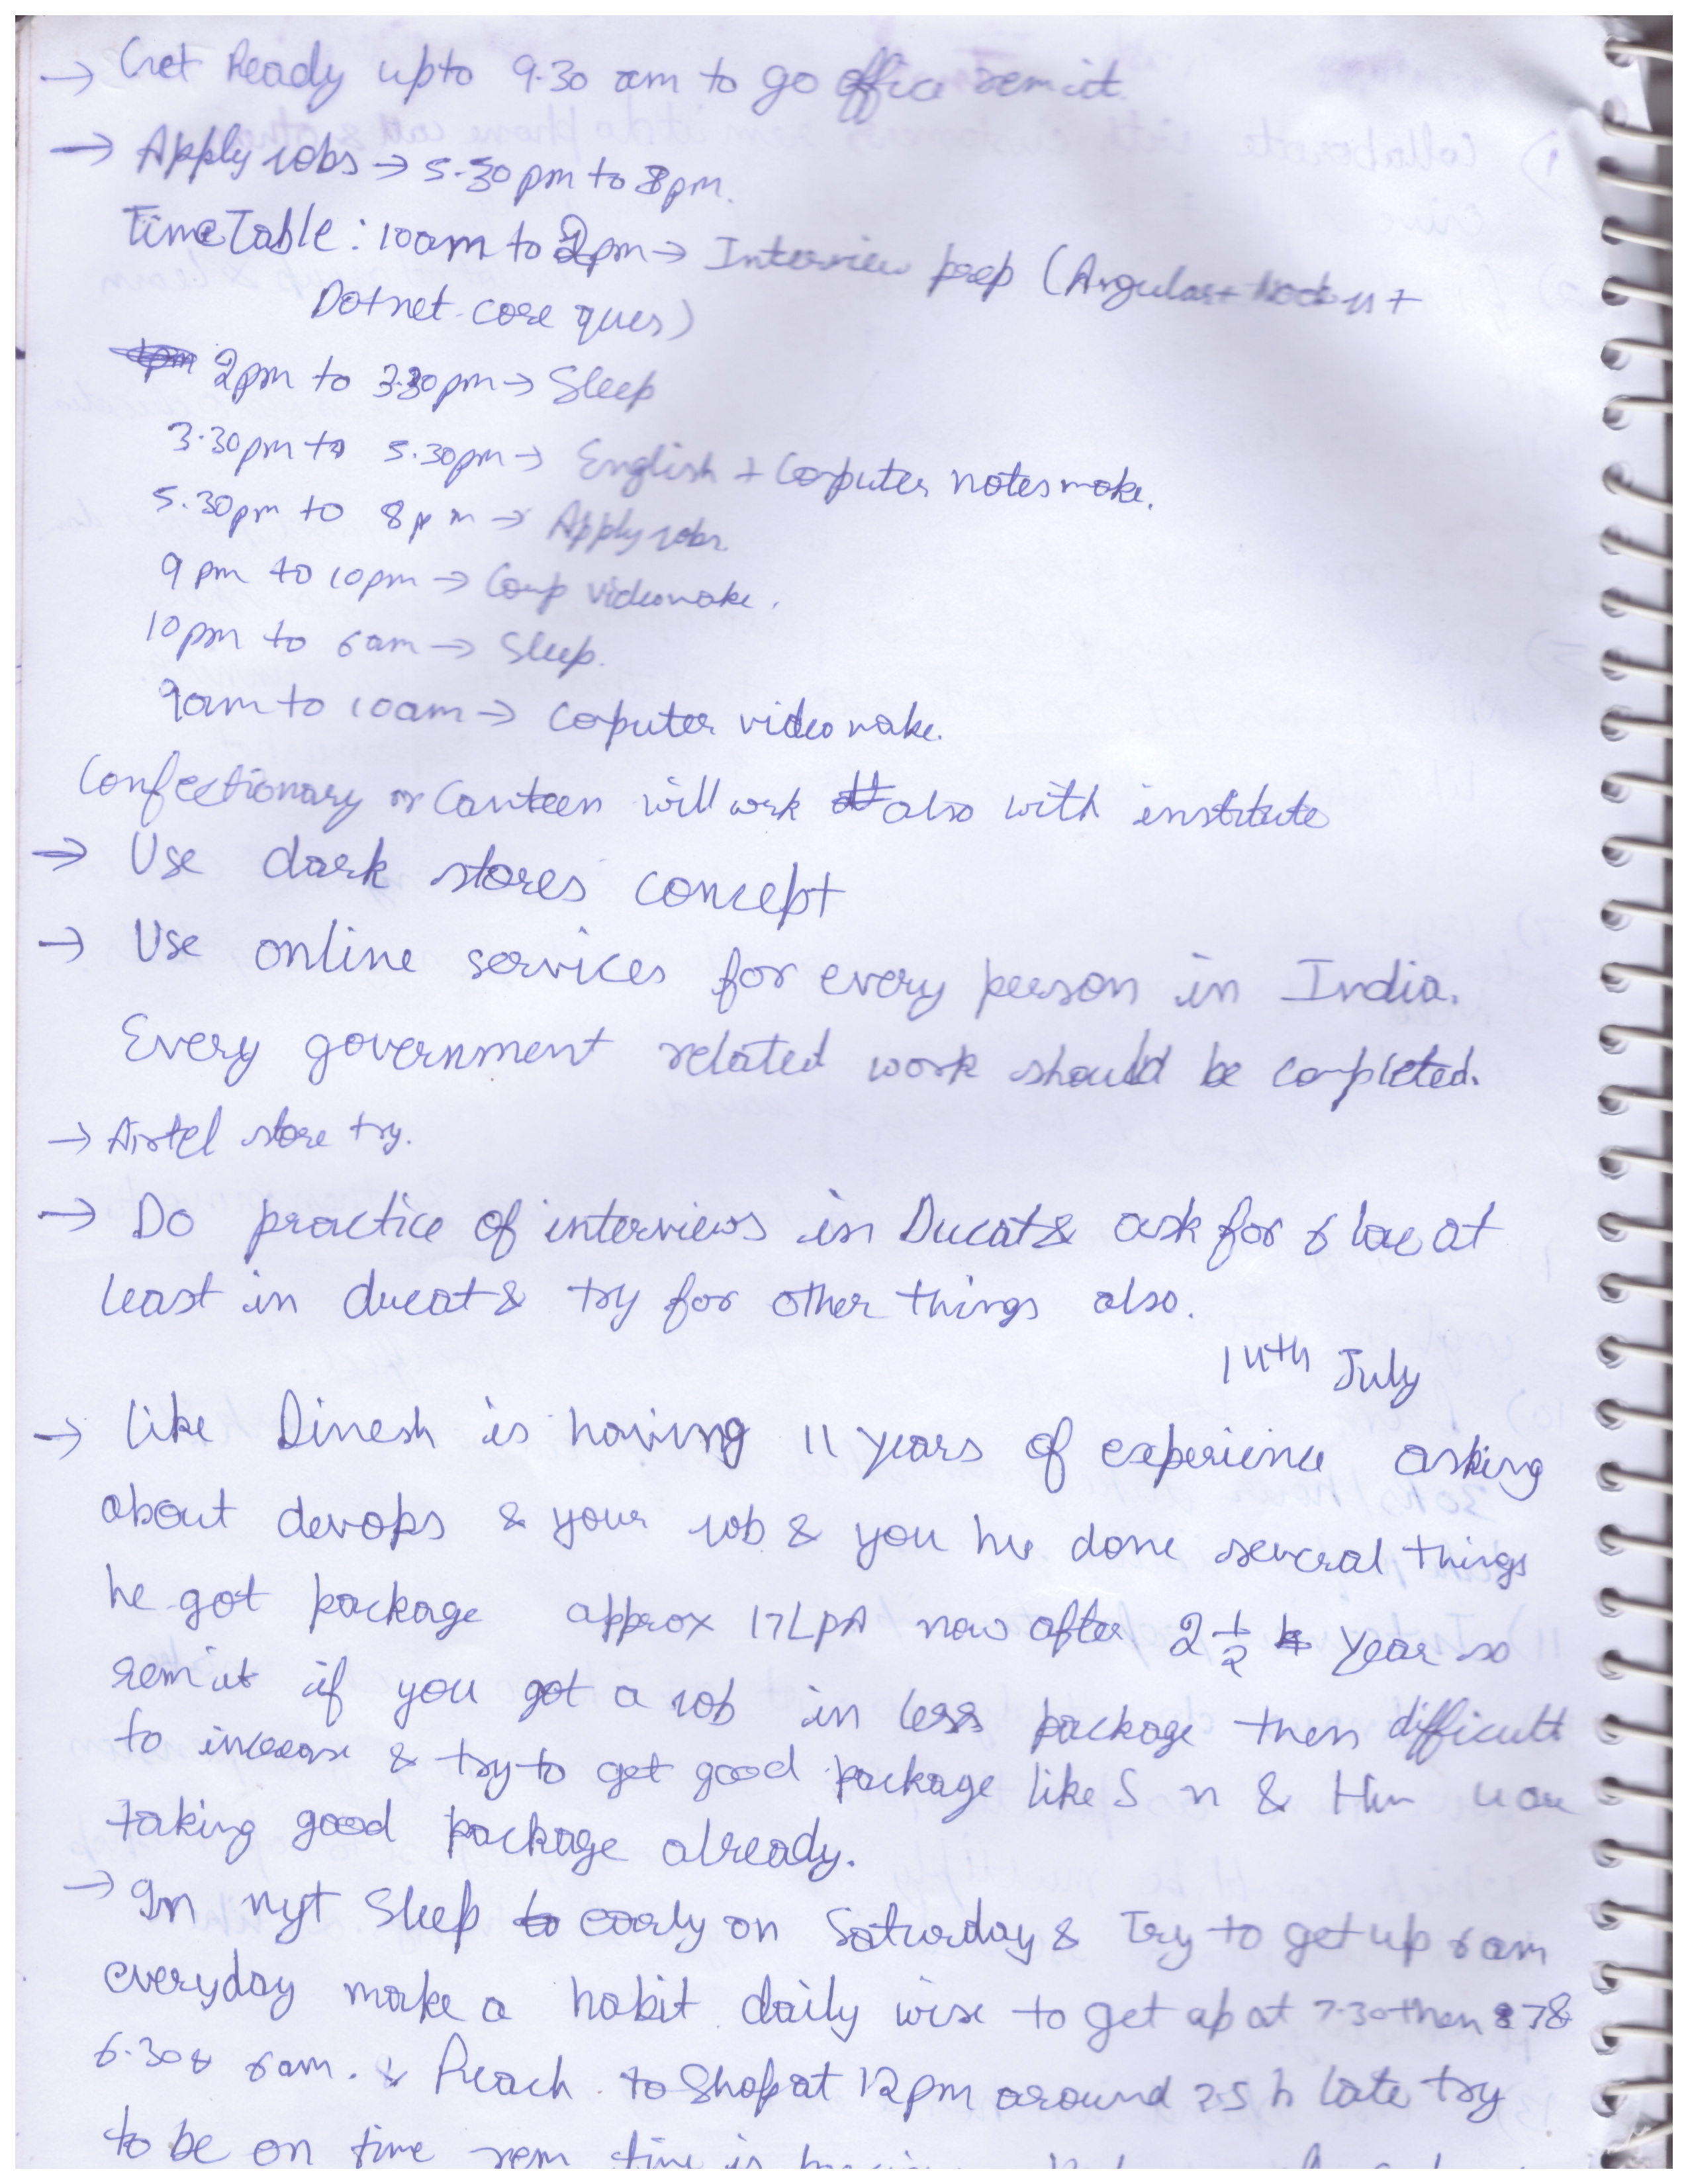 → Get Ready upto 9.30 am to go office rem it.
→ Apply jobs → 5.30 pm to 8 pm.
Time Table : 10am to 2pm → Interview prep (Angular + Node js +
Dotnet core ques)
2pm to 3.30pm → Sleep
3.30pm to 5.30pm → English + Computer notes make.
5.30pm to 8pm → Apply jobs.
9 pm to 10pm → Comp video make.
10pm to 6am → Sleep.
9am to 10am → Computer video make.
Confectionary or Canteen will work also with institute
→ Use dark stores concept
→ Use online services for every person in India.
Every government related work should be completed.
→ Airtel store try.
→ Do practice of interviews in Ducat & ask for 6 lac at
least in ducat & try for other things also.
14th July
→ Like Dinesh is having 11 years of experience asking
about devops & your job & you hv done several things
he got package approx 17 LPA now after 2 1/2 year so
rem it if you got a job in less package then difficult
to increase & try to get good package like S n & Him
taking good package already.
→ In nyt Sleep early on Saturday & Try to get up 6 am
everyday make a habit daily wise to get up at 7.30 then 7 &
6.30 & 6 am. & Reach to Shop at 12 pm around late try
to be on time rem time is